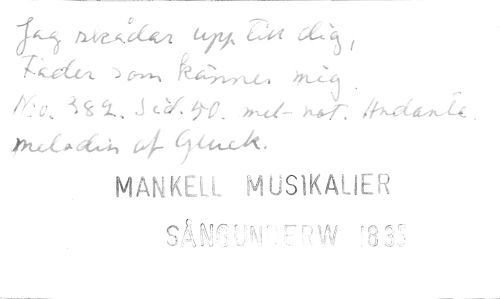 Jag skådar upp till dig,
Fader som känner mig.
No. 382. Sid. 50. mel-not. Andante.
melodin af Gluck.
MANKELL MUSIKALIER
SÅNGUNDERW 1835